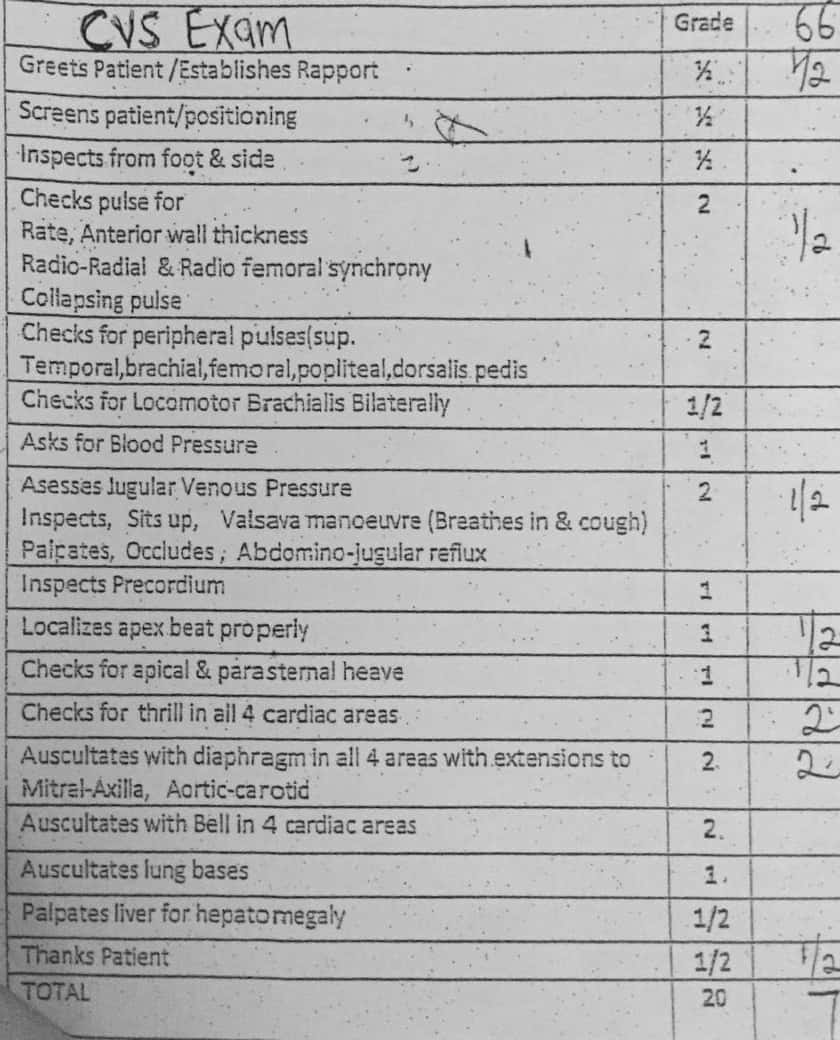 CVS Exam Grade 66
Greets Patient /Establishes Rapport ½ 1/2
Screens patient/positioning ½
Inspects from foot & side ½
Checks pulse for 2
Rate, Anterior wall thickness 1/2
Radio-Radial & Radio femoral synchrony
Collapsing pulse
Checks for peripheral pulses(sup. 2
Temporal,brachial,femoral,popliteal,dorsalis pedis
Checks for Locomotor Brachialis Bilaterally 1/2
Asks for Blood Pressure 1
Asesses Jugular Venous Pressure 2 1/2
Inspects, Sits up, Valsava manoeuvre (Breathes in & cough)
Palpates, Occludes ; Abdomino-jugular reflux
Inspects Precordium 1
Localizes apex beat properly 1 1/2
Checks for apical & parasternal heave 1 1/2
Checks for thrill in all 4 cardiac areas 2 2
Auscultates with diaphragm in all 4 areas with extensions to 2 2
Mitral-Axilla, Aortic-carotid
Auscultates with Bell in 4 cardiac areas 2
Auscultates lung bases 1
Palpates liver for hepatomegaly 1/2
Thanks Patient 1/2 1/2
TOTAL 20 7